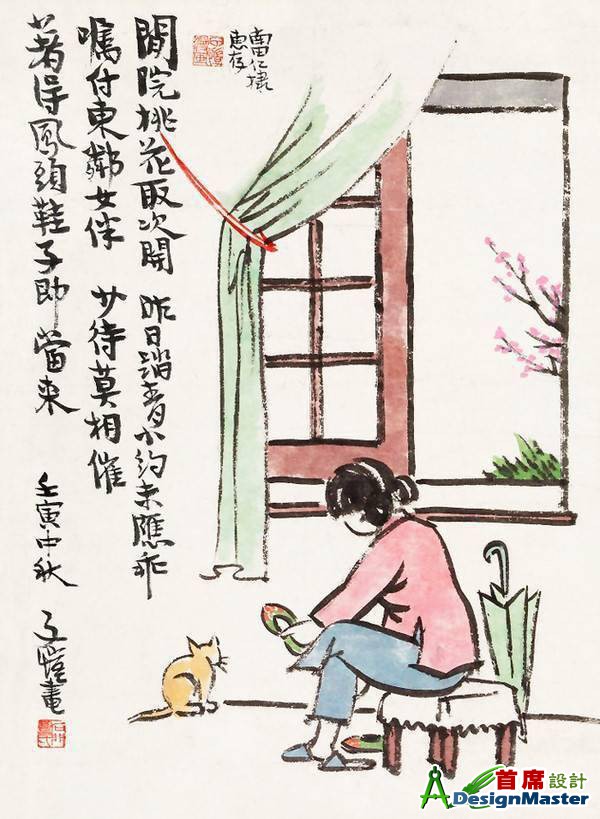 仁棣
惠存
閒院桃花取次開 昨日踏青小約未應乖
囑付東鄰女伴 少待莫相催
著得鳳頭鞋子即當來
壬寅中秋 子愷畫
首席設計
DesignMaster